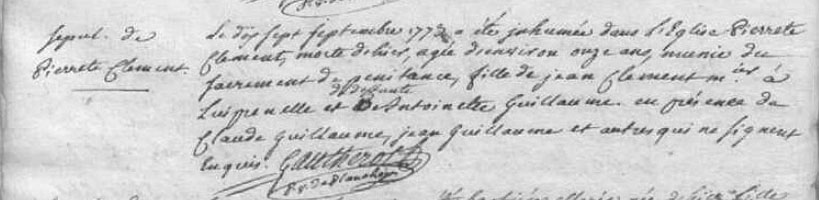 sepul. de
Pierrete Clement.
Le dix sept septembre 1773 a été inhumée dans l'Eglise Pierrete
Clement, morte d'hier, agée d'environ onze ans, munie du
sacrement de penitance, fille de jean Clement m.ier à
defunte
et d'Antoinette Guillaume. en présence de
Claude Guillaume, jean Guillaume et autres qui ne signent
Enquis. Gautherot